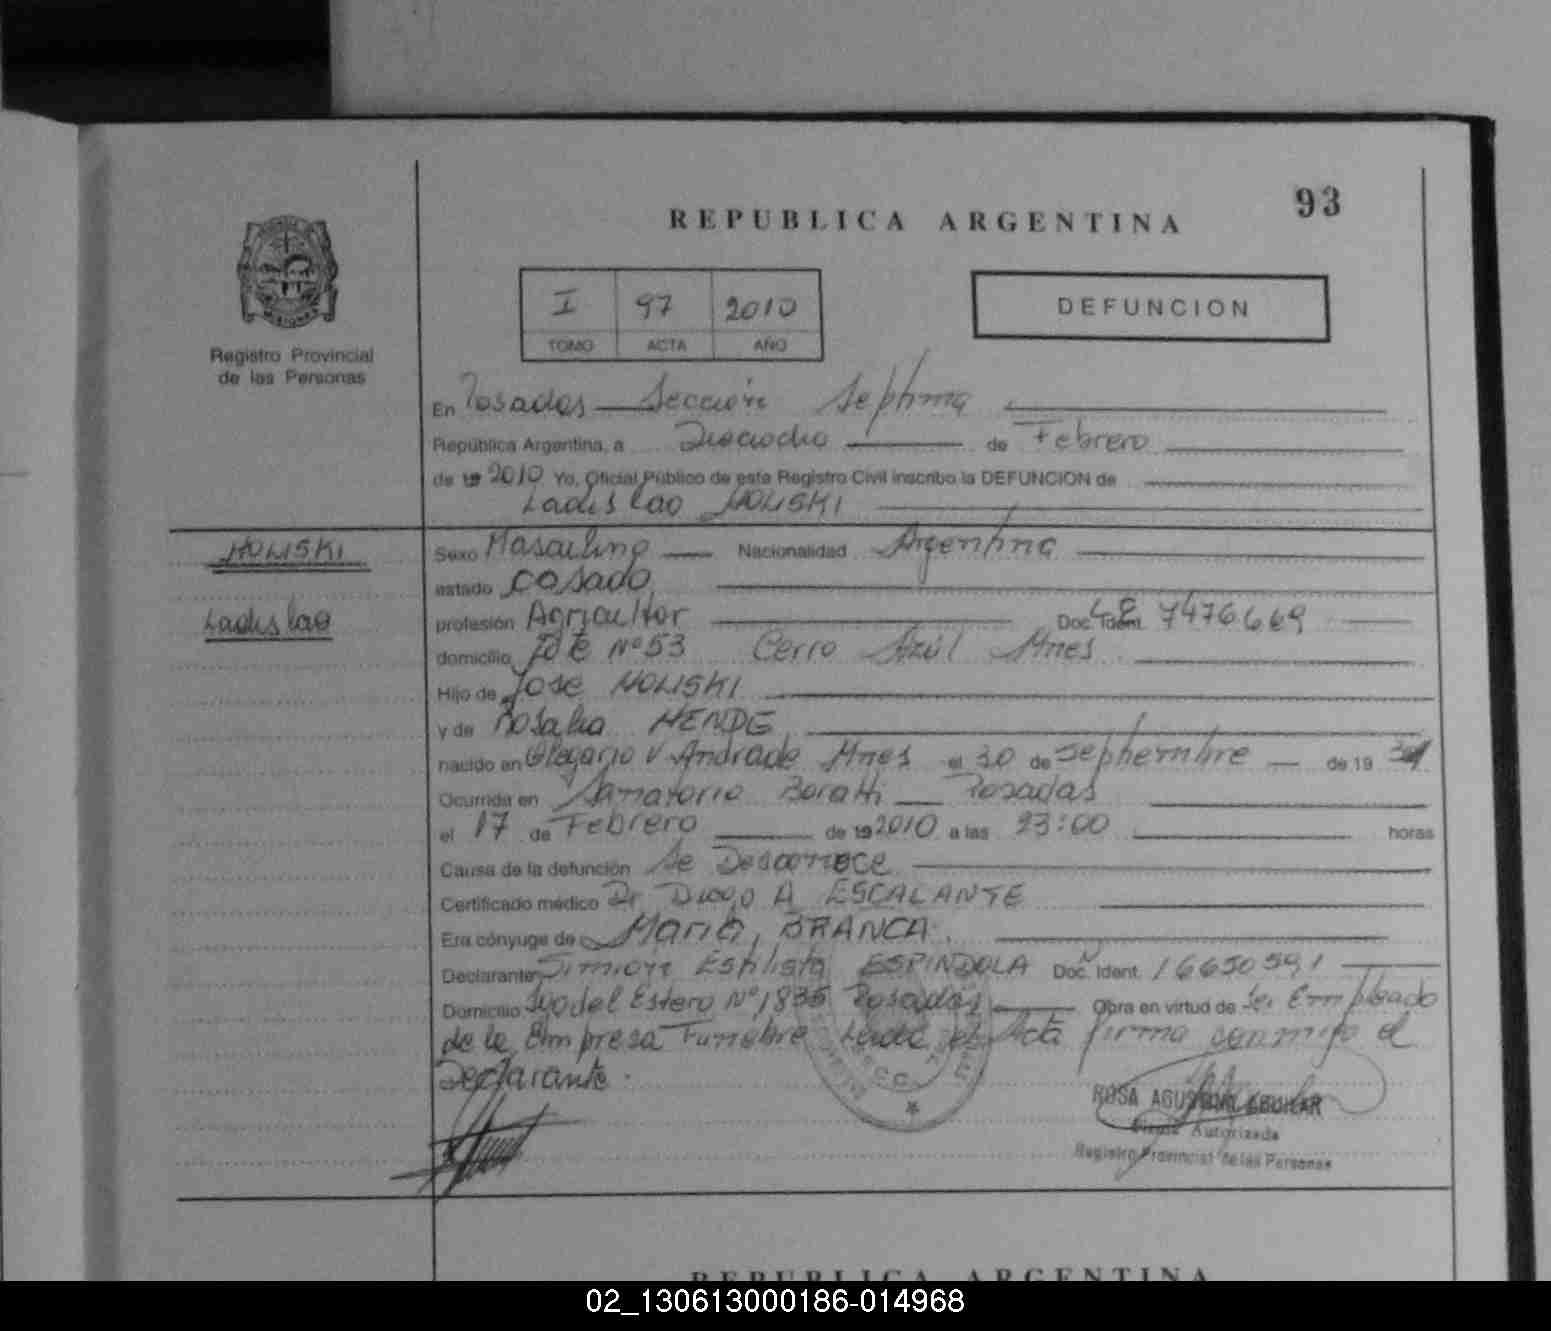 93
REPUBLICA ARGENTINA
I 97 2010
TOMO ACTA AÑO
DEFUNCION
Registro Provincial
de las Personas
En Posadas Sección Septima
República Argentina, a Dieciocho de Febrero
de 19 2010 Yo, Oficial Público de este Registro Civil inscribo la DEFUNCION de
Ladislao HOLISKI
HOLISKI
Ladislao
Sexo Masculino Nacionalidad Argentina
estado casado
profesión Agricultor Doc. Ident. 7476669
domicilio Lote Nº 53 Cerro Azúl Mnes
Hijo de José HOLISKI
y de Rosalia MENDE
nacido en Olegario V Andrade Mnes el 30 de Septiembre de 19
Ocurrida en Sanatorio Boratti Posadas
el 17 de Febrero de 19 2010 a las 23:00 horas
Causa de la defunción Se Desconoce
Certificado médico Dr Diego A ESCALANTE
Era cónyuge de Maria, BRANCA
Declarante Simión ESPINDOLA Doc. Ident. 16650591
Domicilio Sgo del Estero Nº 1835 Posadas Obra en virtud de Ser Empleado
de la Empresa Funebre Leída el Acta firma conmigo el
Declarante.
ROSA AGUILAR
Firma Autorizada
Registro Provincial de las Personas
REPUBLICA ARGENTINA
02_130613000186-014968